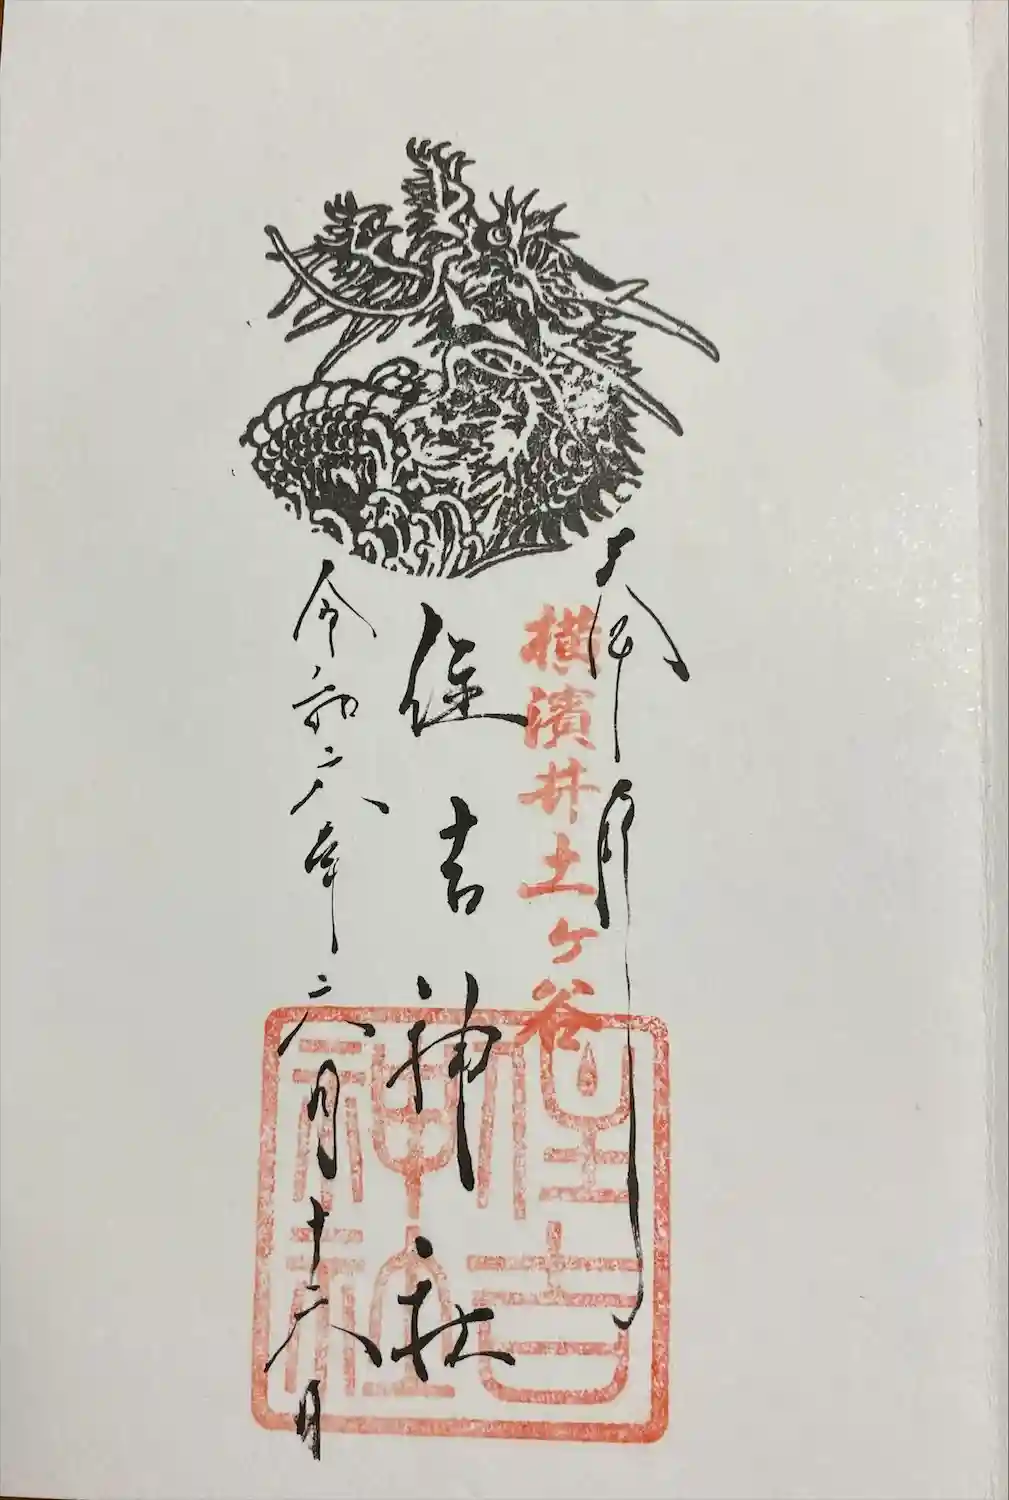 奉拝
横濱井土ケ谷
住吉神社
令和六年六月十六日
住吉
神社